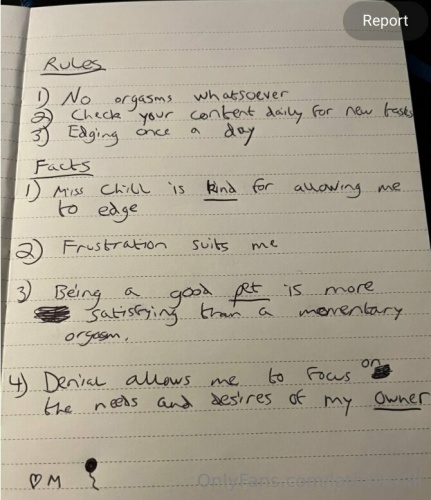 Report
Rules
1) No orgasms whatsoever
2) Check your content daily for new tasks
3) Edging once a day
Facts
1) Miss Chill is kind for allowing me
to edge
2) Frustration suits me
3) Being a good pet is more
satisfying than a momentary
orgasm.
4) Denial allows me to focus on
the needs and desires of my owner
♡ M